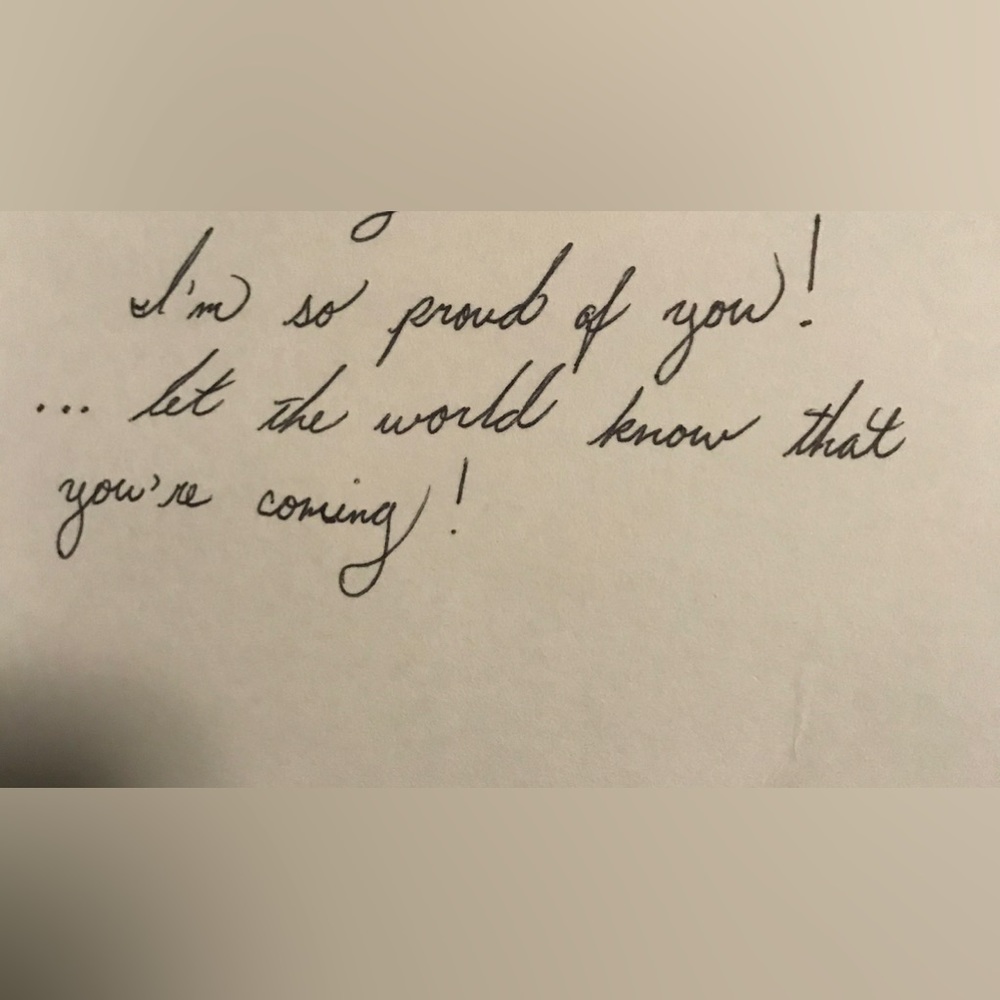 I'm so proud of you!
... let the world know that
you're coming!